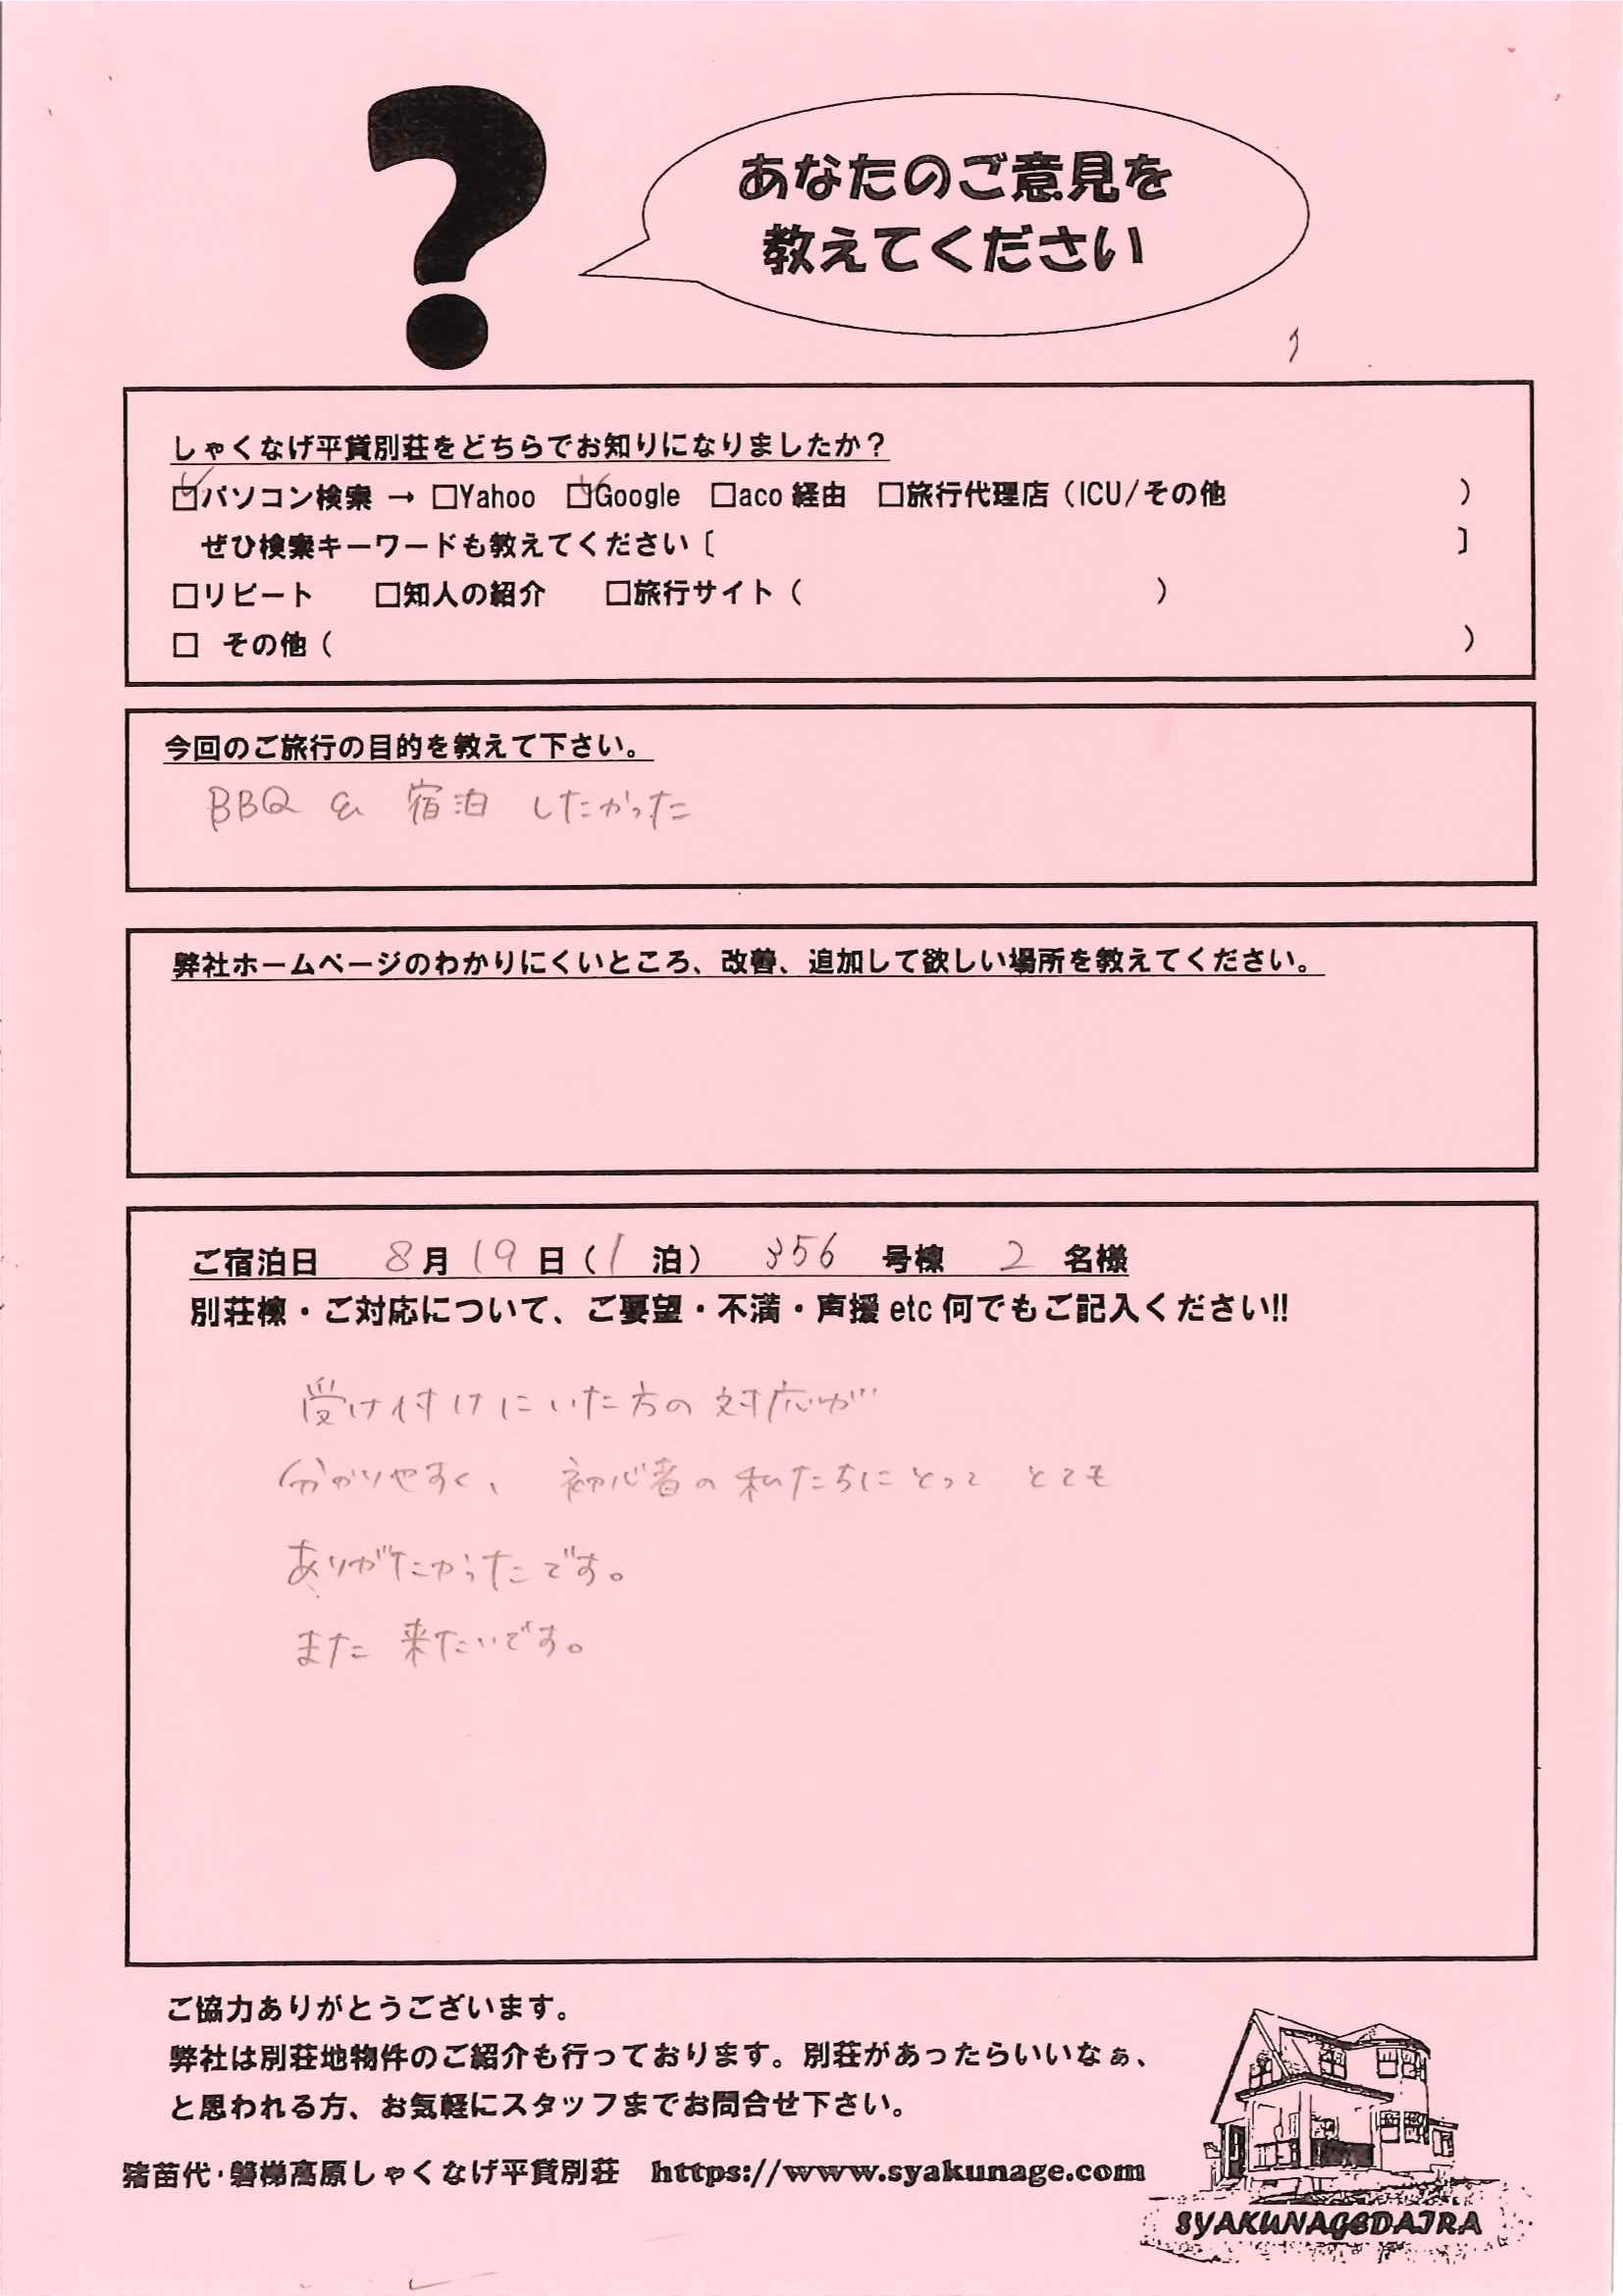 あなたのご意見を
教えてください
しゃくなげ平貸別荘をどちらでお知りになりましたか？
☑パソコン検索 → □Yahoo ☑Google □aco 経由 □旅行代理店（ICU/その他 ）
ぜひ検索キーワードも教えてください〔 〕
□リピート □知人の紹介 □旅行サイト（ ）
□ その他（ ）
今回のご旅行の目的を教えて下さい。
BBQ & 宿泊 したかった
弊社ホームページのわかりにくいところ、改善、追加して欲しい場所を教えてください。
ご宿泊日 8月19日（1泊） 356 号棟 2 名様
別荘棟・ご対応について、ご要望・不満・声援 etc 何でもご記入ください!!
受け付けにいた方の対応が
分かりやすく、初心者の私たちにとって とても
ありがたかったです。
また 来たいです。
ご協力ありがとうございます。
弊社は別荘地物件のご紹介も行っております。別荘があったらいいなぁ、
と思われる方、お気軽にスタッフまでお問合せ下さい。
猪苗代・磐梯高原しゃくなげ平貸別荘 https://www.syakunage.com
SYAKUNAGEDAIRA